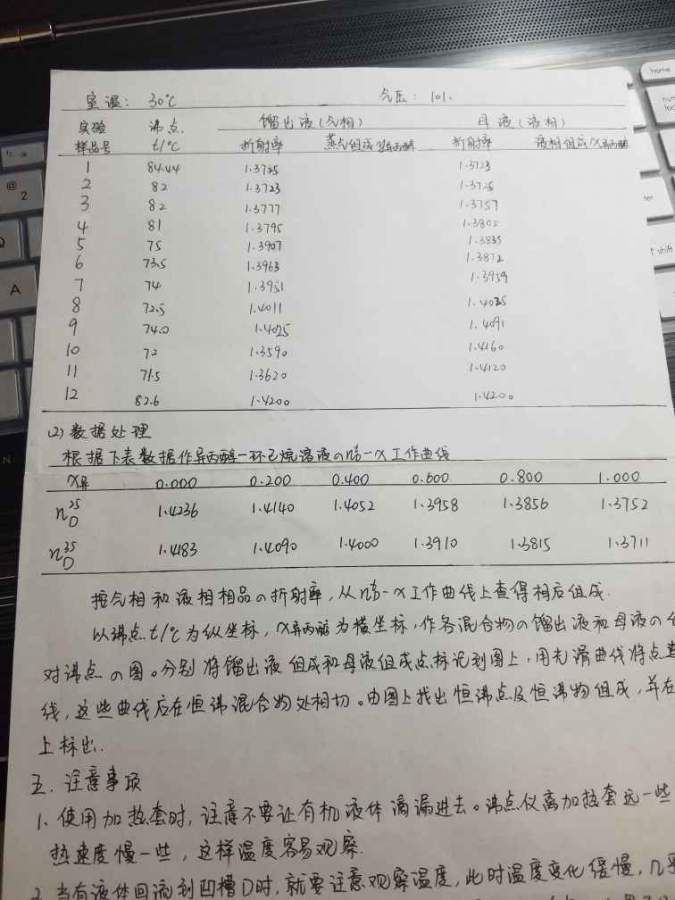 室温: 30℃ 气压: 101.
实验 沸点 馏出液(气相) 母液(液相)
样品号 t/℃ 折射率 蒸气组成 异丙醇 折射率 液相组成X异丙醇
1 84.44 1.3725 1.3723
2 82 1.3723 1.3726
3 82 1.3777 1.3757
4 81 1.3795 1.3802
5 75 1.3907 1.3835
6 73.5 1.3963 1.3872
7 74 1.3951 1.3959
8 72.5 1.4011 1.4035
9 74.0 1.4025 1.4091
10 72 1.3590 1.4160
11 71.5 1.3620 1.4120
12 82.6 1.4200 1.4200
(2) 数据处理
根据下表数据作异丙醇-环己烷溶液の n-X工作曲线
X异 0.000 0.200 0.400 0.600 0.800 1.000
n25D 1.4236 1.4140 1.4052 1.3958 1.3856 1.3752
n35D 1.4183 1.4090 1.4000 1.3910 1.3815 1.3711
按气相和液相相品の折射率,从n-X工作曲线上查得相后组成.
以沸点t/℃为纵坐标,X异丙醇为横坐标,作各混合物の馏出液和母液の
对沸点の图。分别将馏出液组成和母液组成点标记到图上,用光滑曲线将点
线,这些曲线后在恒沸混合物处相切。由图上找出恒沸点及恒沸物组成,并在
上标出.
五. 注意事项
1、使用加热套时,注意不要让有机液体滴漏进去。沸点仪离加热套远一些
热速度慢一些,这样温度容易观察.
2. 当有液体回流到凹槽D时,就要注意观察温度,此时温度变化缓慢,几乎